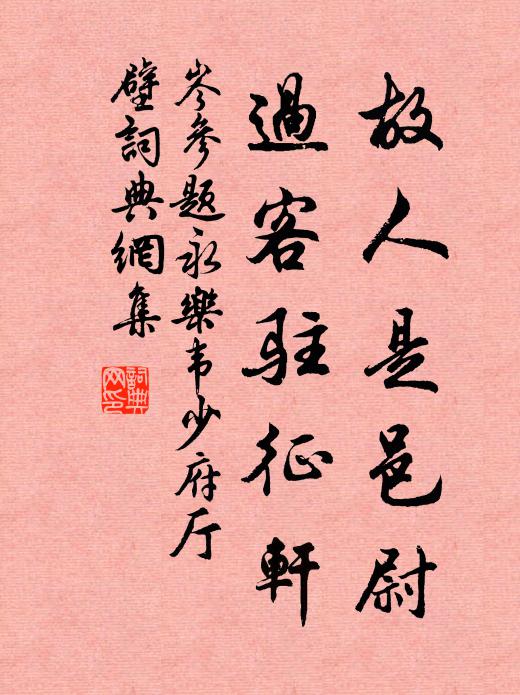 故人是邑尉
過客駐征軒
岑參題永樂韦少府厅
壁詞典網集
詞典
网印